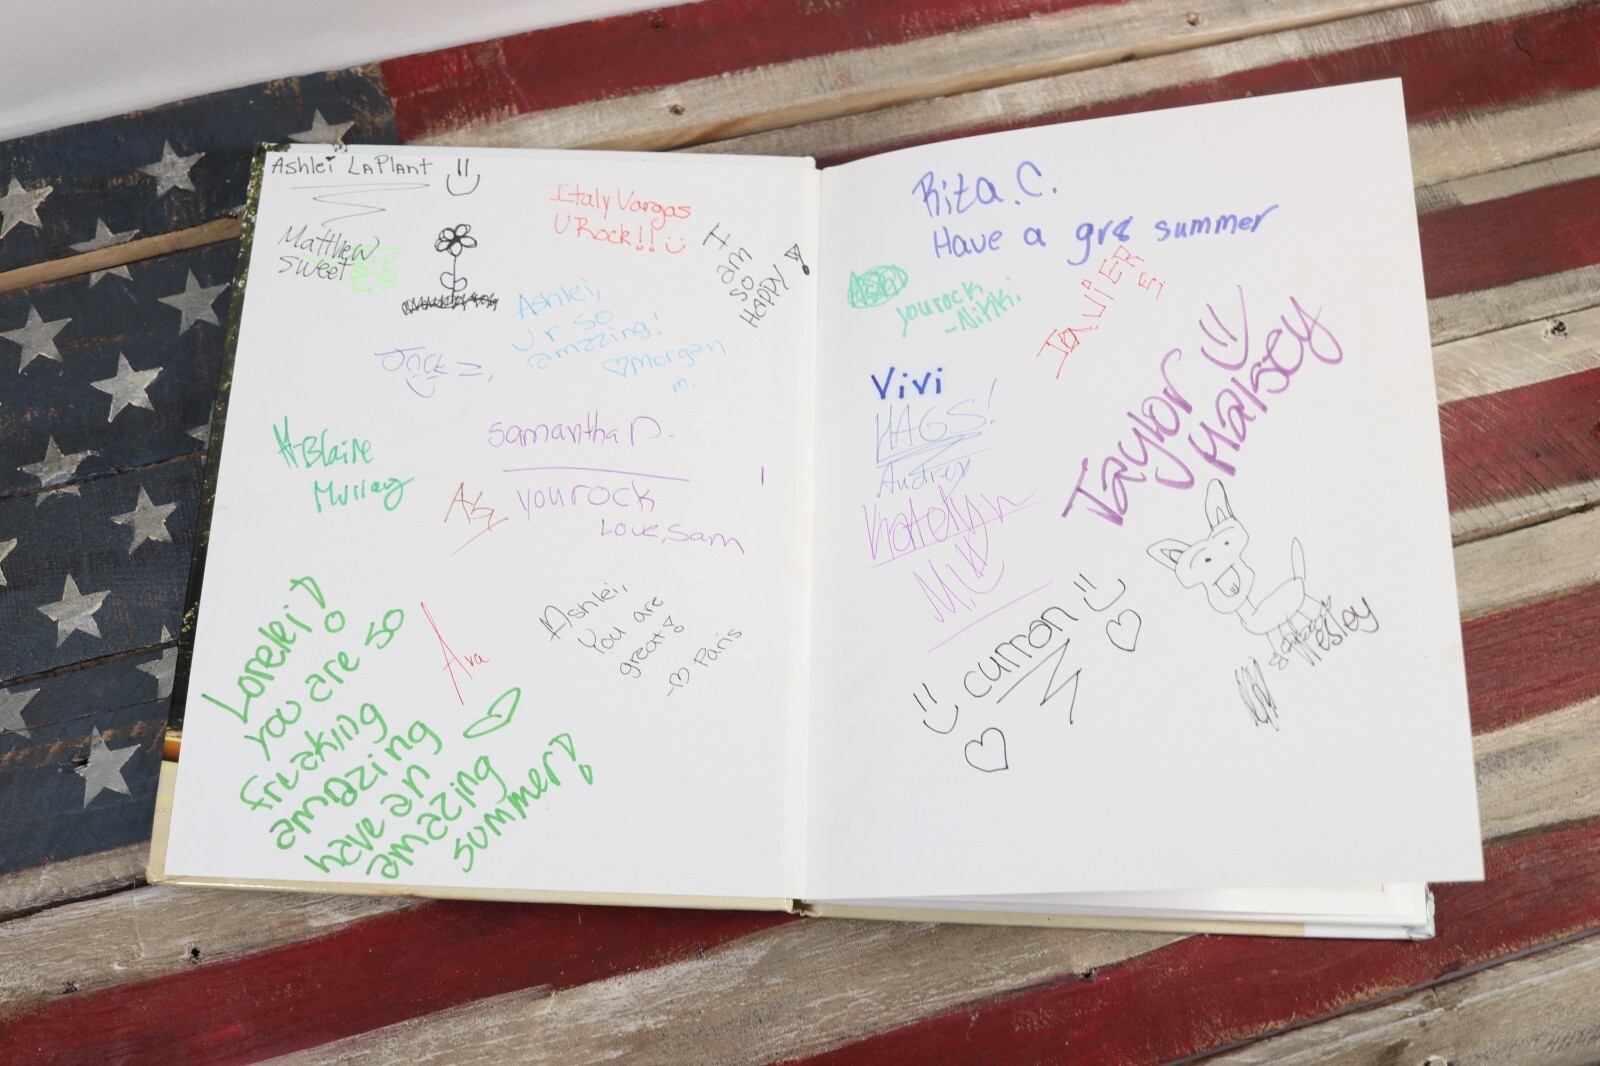 Ashlei LaPlant
Matthew
Sweet
Italy Vargas
U Rock!!
I am
so
Happy!
Ashlei,
U r so
amzzing!
morgan
m.
Jack Z.
A-Blaine
Murray
samantha D.
you rock
Love, Sam
Ashlei,
You are
great!
Paris
Ava
Lorelei!
you are so
freaking
amazing
have an
amazing
summer!
Rita. C.
Have a gr8 summer
you rock
-Nikki
JAViER
E
Vivi
HAGS!
Audrey
Katelyn
M.W
Taylor
Halsey
curran
Wesley